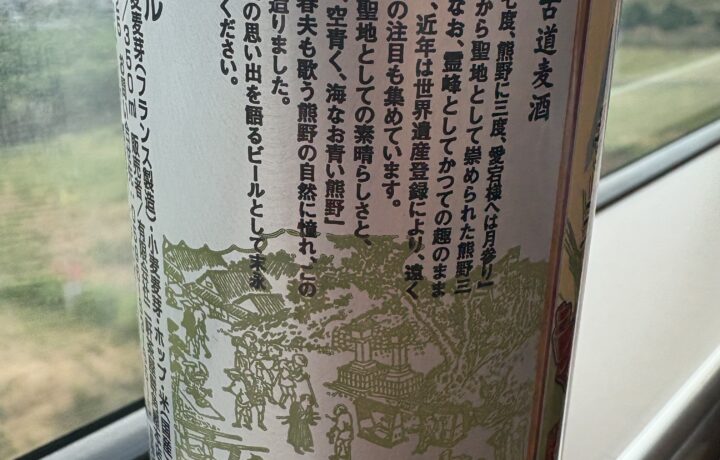 古道麦酒
七度、熊野に三度、愛宕様へは月参り」
から聖地として崇められた熊野三
なお、霊峰としてかつての趣のまま
、近年は世界遺産登録により、遠く
の注目も集めています。
聖地としての素晴らしさと、
、空青く、海なお青い熊野」
春夫も歌う熊野の自然に憧れ、この
造りました。
の思い出を語るビールとして末永
ください。
ル
麦麦芽(フランス製造)小麦麦芽・ホップ・米
350ml 販売者